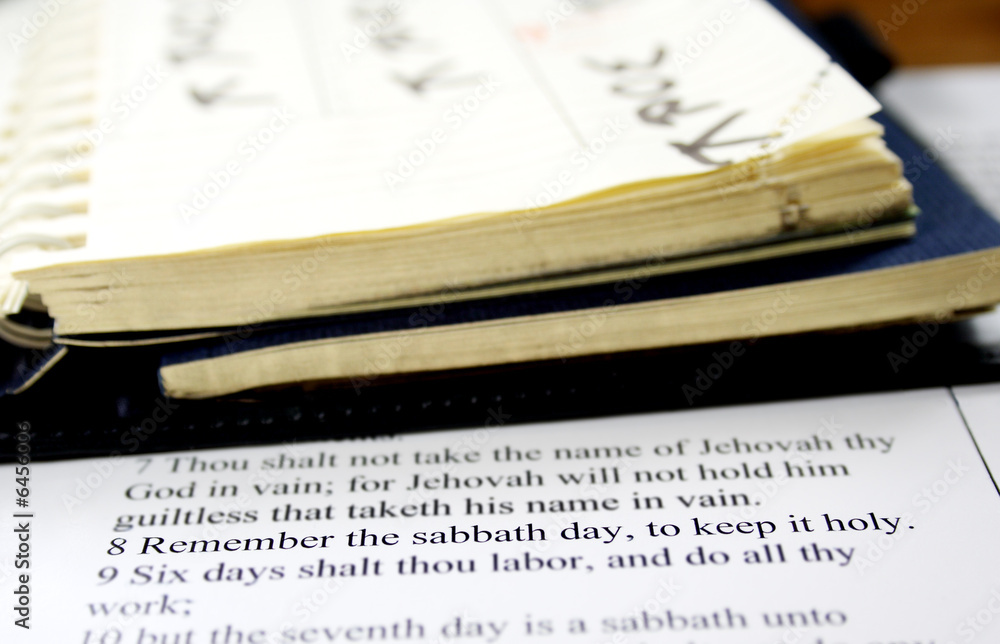 7 Thou shalt not take the name of Jehovah thy
God in vain; for Jehovah will not hold him
guiltless that taketh his name in vain.
8 Remember the sabbath day, to keep it holy.
9 Six days shalt thou labor, and do all thy
work;
10 but the seventh day is a sabbath unto
Adobe Stock | #6456006